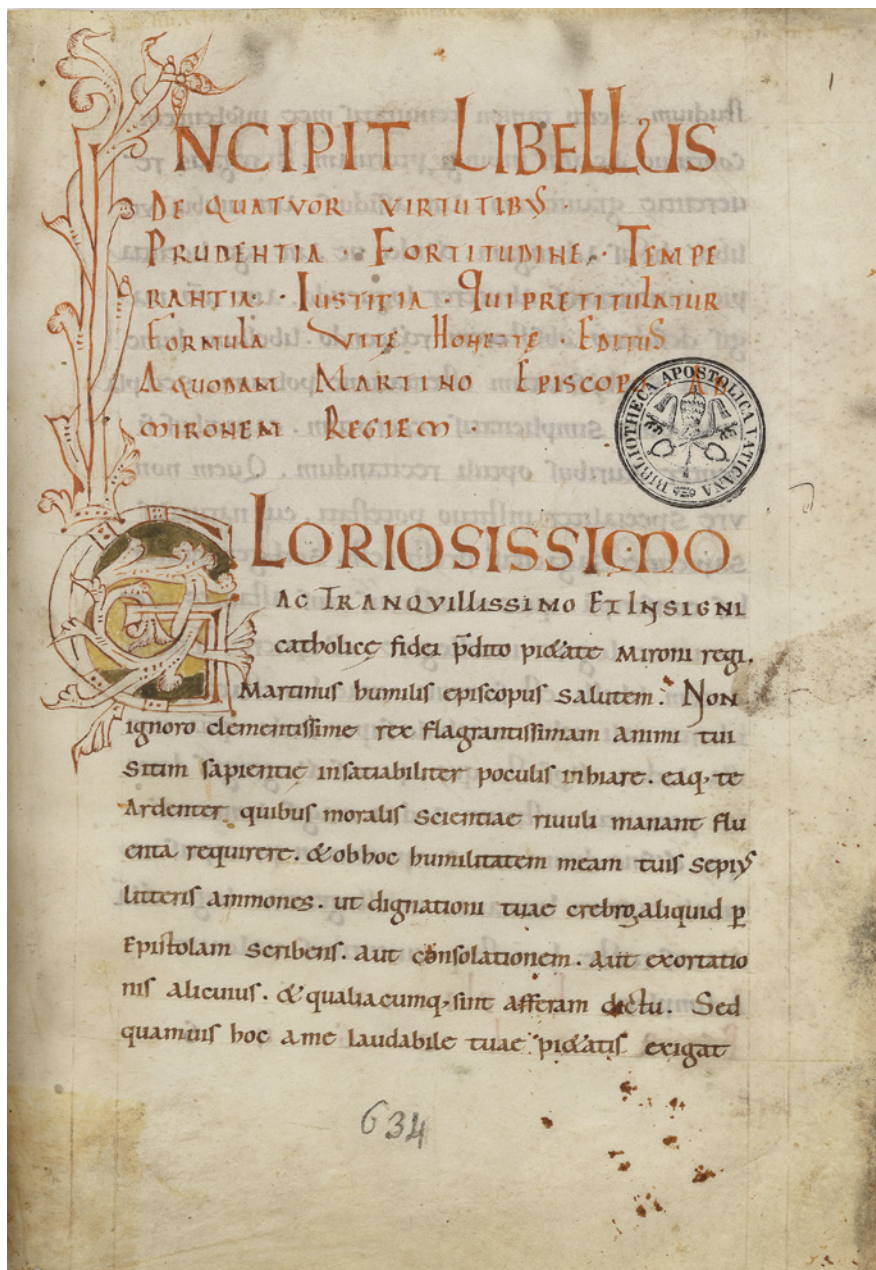 INCIPIT LIBELLUS
DE QUATVOR VIRTUTIBVS ·
PRUDENTIA · FORTITUDINE · TEMPE
RANTIA · IUSTITIA · QUI PRETITULATUR
FORMULA VITĘ HONESTĘ · EDITUS
A QUODAM MARTINO EPISCOPO AD
MIRONEM REGEM ·
GLORIOSISSIMO
AC TRANQVILLISSIMO ET INSIGNI
catholicę fidei p̄dito pietate Mironi regi.
Martinus humilis episcopus salutem. Non
ignoro clementissime rex flagrantissimam animi tui
sitim sapientię insatiabiliter poculis inhiare. eaq, te
Ardenter quibus moralis scientiae riuuli manant flu
enta requirere. & ob hoc humilitatem meam tuis sepius
litteris ammones. ut dignationi tuae crebro aliquid ꝑ
Epistolam scribens. aut consolationem. aut exortatio
nis alicuius. & qualiacumq, sint afferam dictu. Sed
quamuis hoc a me laudabile tuae pi&atis exigat
634
1
BIBLIOTHECA APOSTOLICA VATICANA